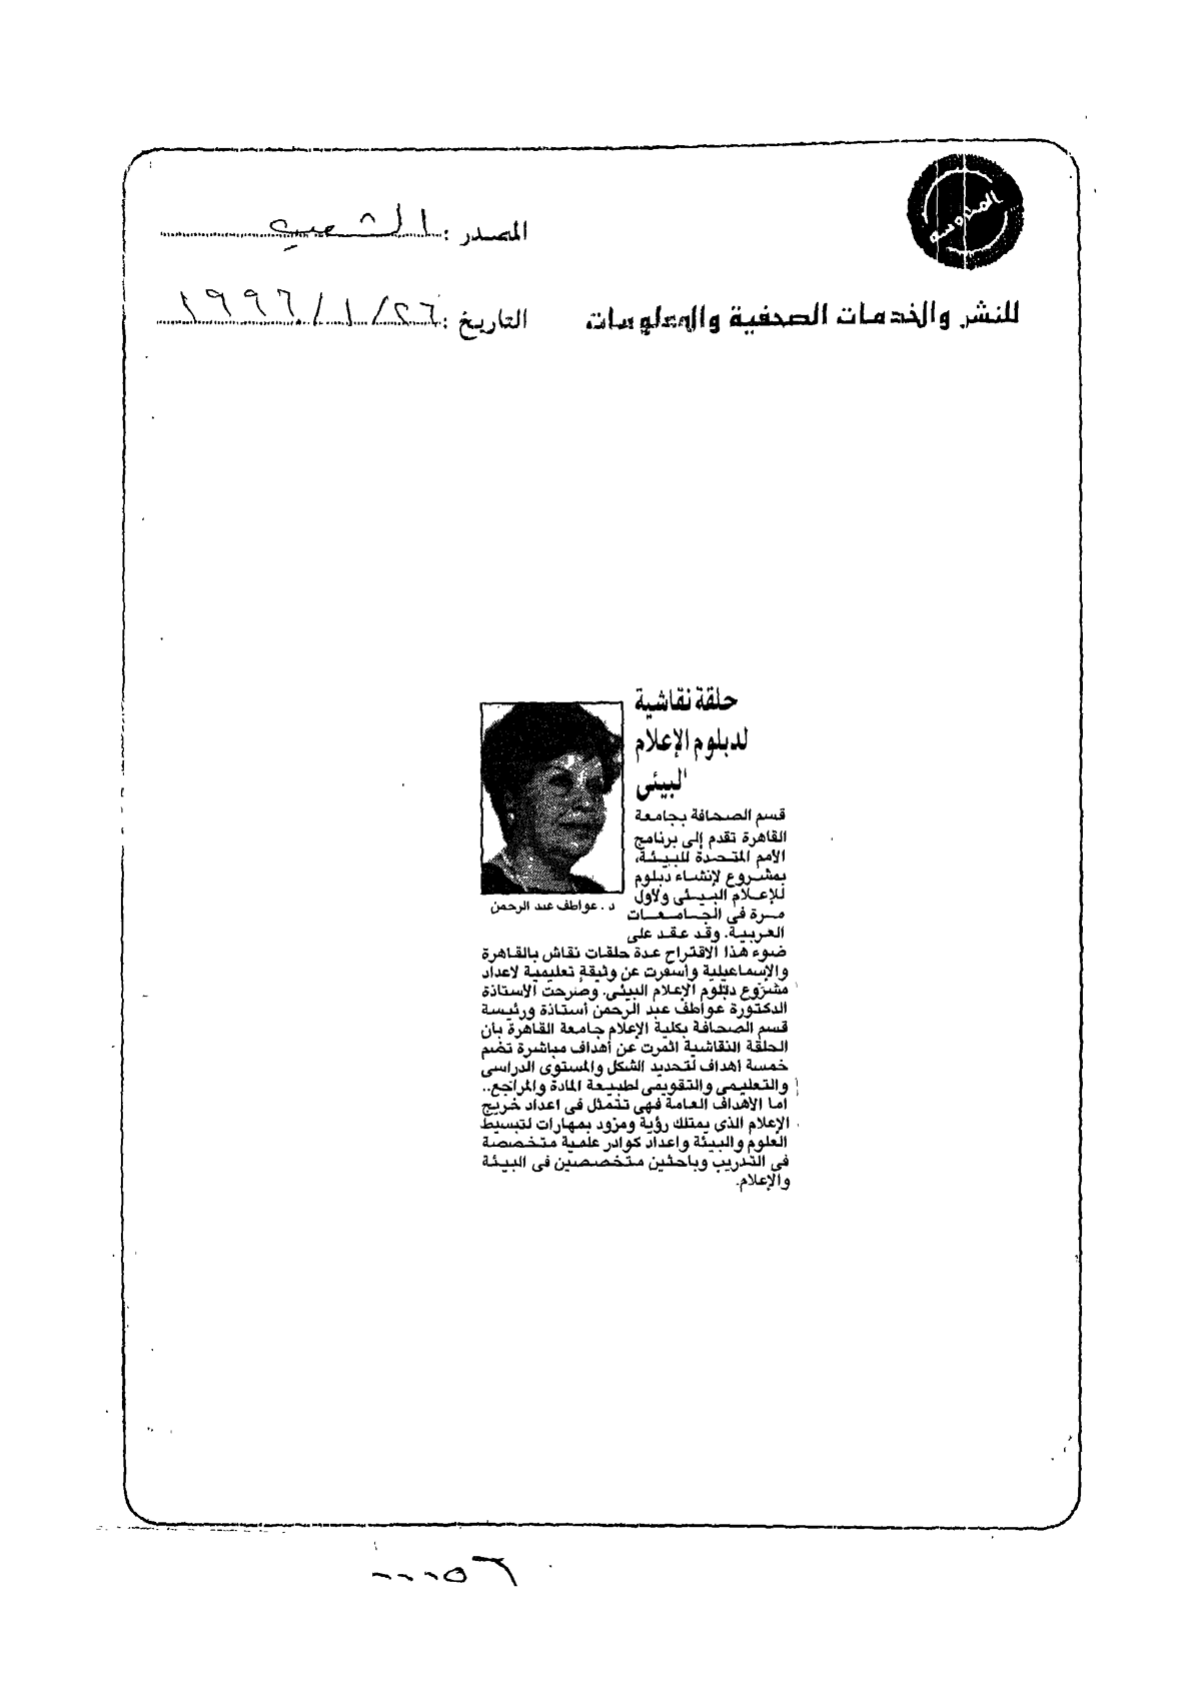 المحروسة
المصدر : الشعب
للنشر والخدمات الصحفية والمعلومات
التاريخ : ٢٦ / ١ / ١٩٩٦
حلقة نقاشية
لدبلوم الإعلام
البيئى
د. عواطف عبد الرحمن
قسم الصحافة بجامعة
القاهرة تقدم إلى برنامج
الأمم المتحدة للبيئة،
بمشروع لإنشاء دبلوم
للإعلام البيئى ولأول
مرة فى الجامعات
العربية. وقد عقد على
ضوء هذا الاقتراح عدة حلقات نقاش بالقاهرة
والإسماعيلية وأسفرت عن وثيقة تعليمية لاعداد
مشروع دبلوم الإعلام البيئى. وصرحت الاستاذة
الدكتورة عواطف عبد الرحمن أستاذة ورئيسة
قسم الصحافة بكلية الإعلام جامعة القاهرة بأن
الحلقة النقاشية اثمرت عن أهداف مباشرة تضم
خمسة اهداف لتحديد الشكل والمستوى الدراسى
والتعليمى والتقويمى لطبيعة المادة والمراجع..
اما الأهداف العامة فهى تتمثل فى اعداد خريج
الإعلام الذى يمتلك رؤية ومزود بمهارات لتبسيط
العلوم والبيئة واعداد كوادر علمية متخصصة
فى التدريب وباحثين متخصصين فى البيئة
والإعلام.
٠٠٠٥٦